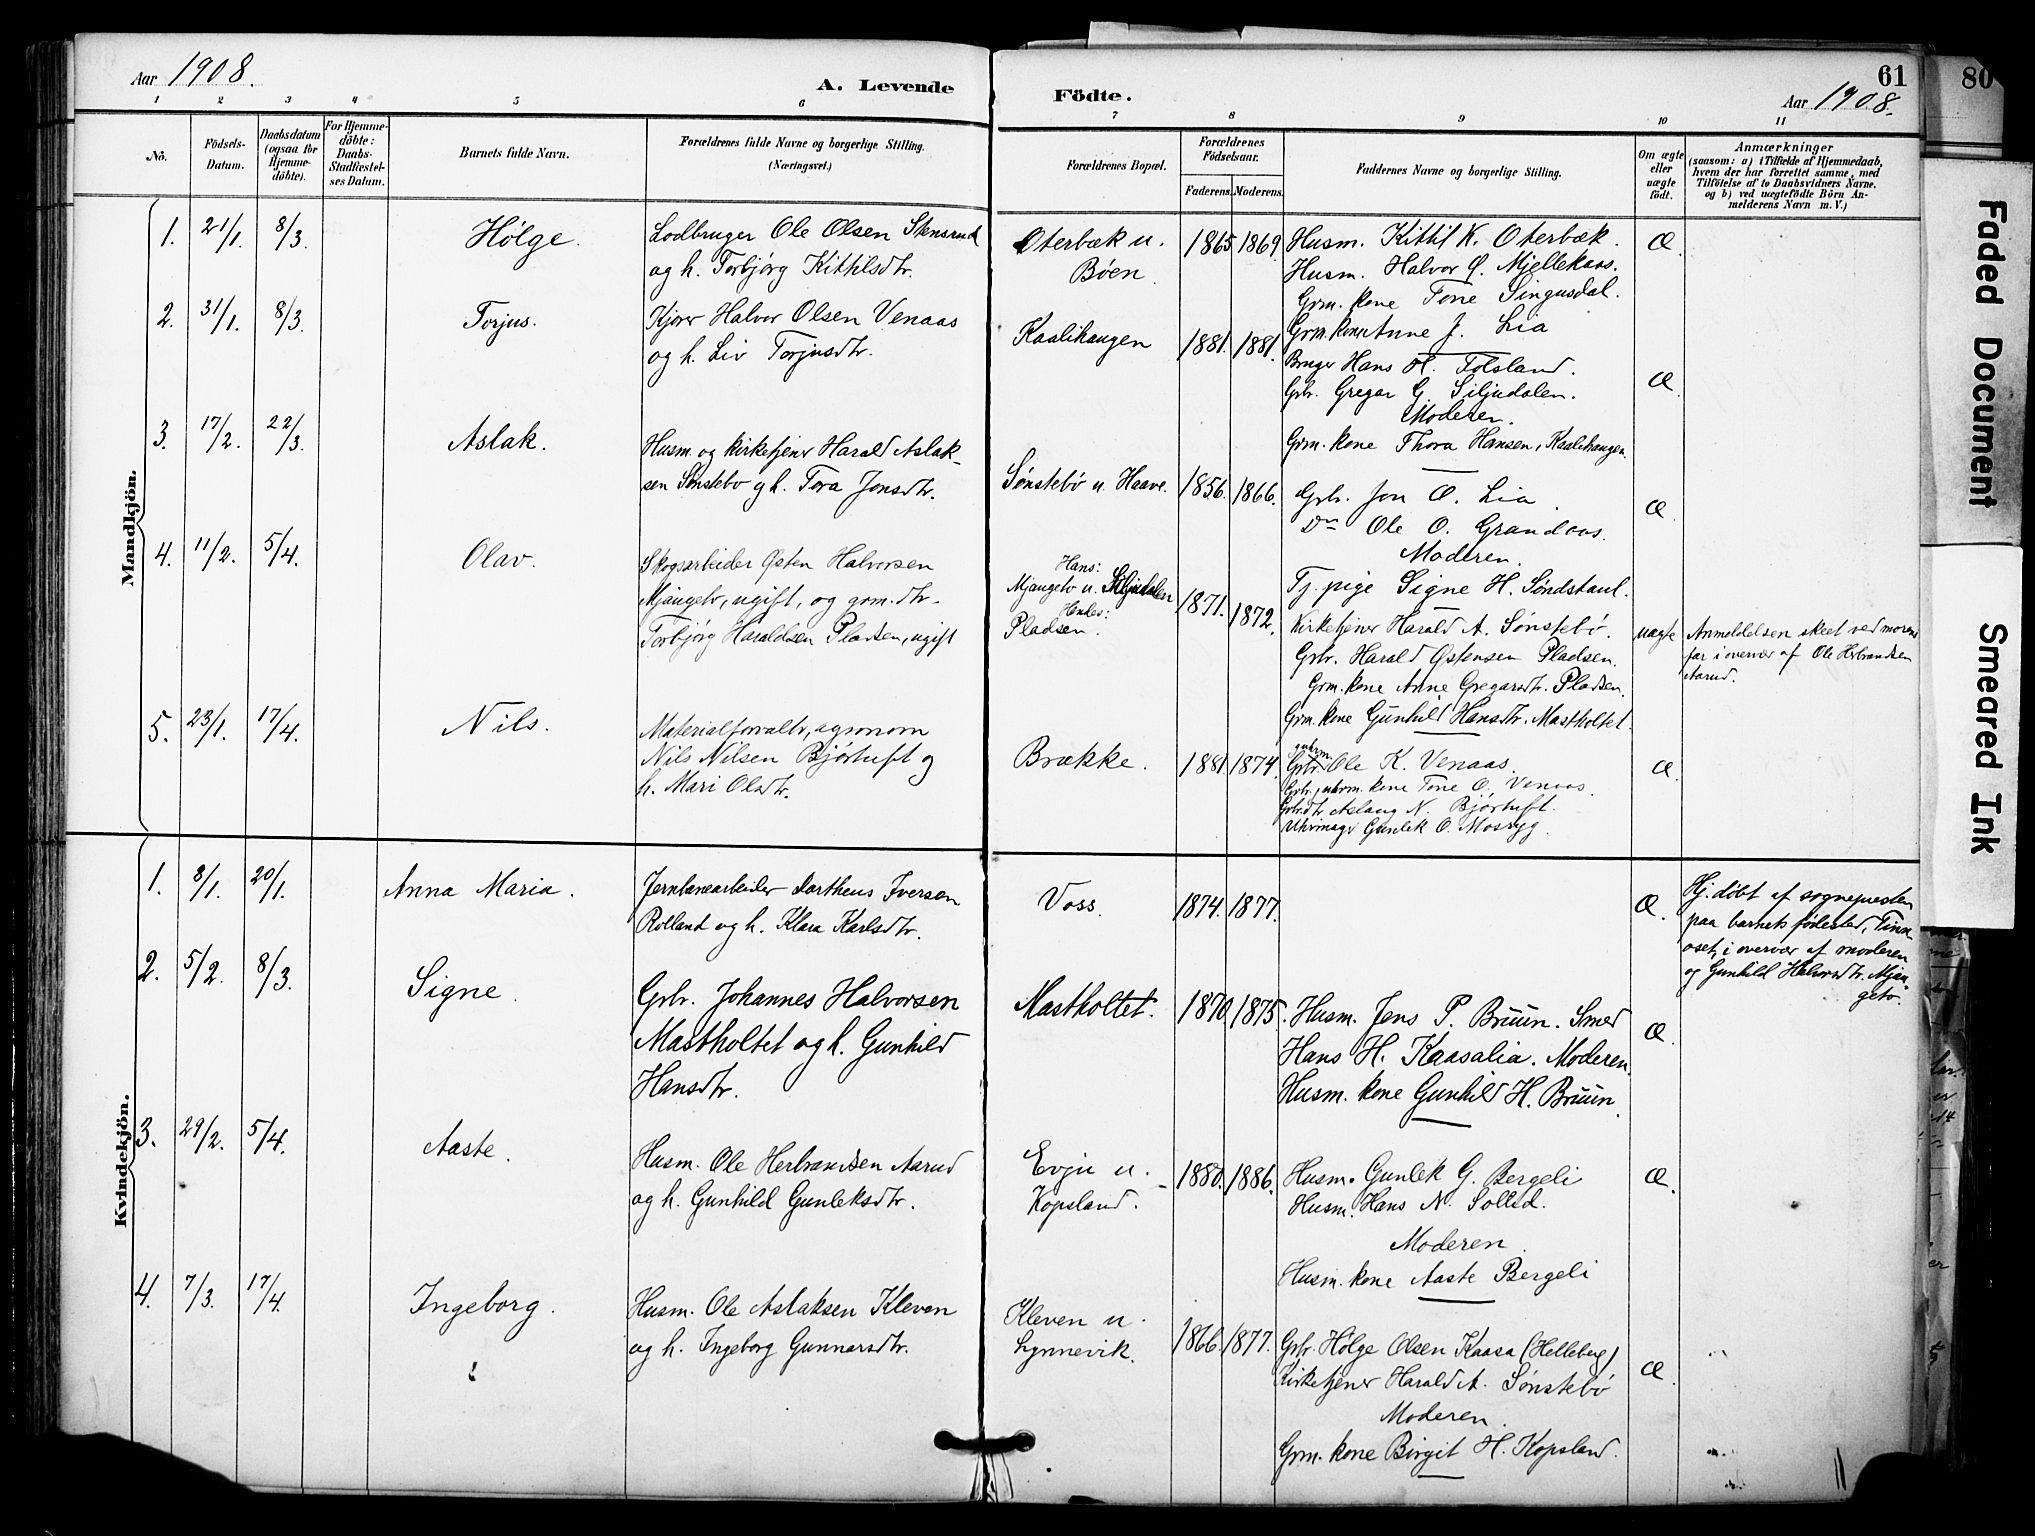 Aar 1908. A. Levende
Födte. 61
Aar 1908.
80
1 2 3 4 5 6 7 8 9 10 11
No.
Födsels-
Datum.
Daabsdatum
(ogsaa for
Hjemme-
döbte).
For Hjemme-
döbte:
Daabs-
Stadfæstel-
ses Datum.
Barnets fulde Navn.
Forældrenes fulde Navne og borgerlige Stilling.
(Næringsvei.)
Forældrenes Bopæl.
Forældrenes
Födselsaar.
Faderens. Moderens.
Faddernes Navne og borgerlige Stilling.
Om ægte
eller
uægte
födt.
Anmærkninger
(saasom: a) i Tilfælde af Hjemmedaab,
hvem der har forrettet samme, med
Tilföielse af to Daabsvidners Navne.
og b) ved uægtefödte Börn An-
melderens Navn m. V.)
Mandkjön.
1. 21/1. 8/3. Hølge.
Lodbruger Ole Olsen Stensrud
og h. Torbjörg Kittilsdtr.
Oterbæk u.
Bøen
1865 1869.
Husm. Kittil K. Oterbæk.
Husm. Halvor O. Mjellekaas.
Grm. kone Tone Singusdal.
Grm. kone Anne J. Lia
Æ.
2. 31/1. 8/3. Torjus.
Kjører Halvor Olsen Venaas
og h. Liv Torjusdtr.
Kaalihaugen
1881. 1881.
Bruger Hans H. Folsland.
Grbr. Gregar G. Siljudalen.
Moderen.
Grm. kone Thora Hansen, Kaalihaugen.
Æ.
3. 17/2. 22/3. Aslak.
Husm. og kirketjener Harald Aslak-
sen Sønstebø og h. Tora Jonsdtr.
Sønstebö u. Haave.
1856. 1866.
Grbr. Jon O. Lia.
Do Ole O. Grandaas.
Moderen.
Tj. pige Signe H. Søndstaul.
Æ.
4. 11/2. 5/4. Olav.
Skogsarbeider Østen Halvorsen
Mjaugetv, ugift, og grm. dtr.
Torbjörg Haraldsen Pladsen, ugift
Hans:
Mjaugetv u. Siljudalen
Hendes:
Pladsen.
1871. 1872.
Kirketjener Harald A. Sønstebö.
Grbr. Harald Østensen Pladsen.
Grm. kone Anne Gregarsdtr. Pladsen.
Grm. kone Gunhild Hansdtr. Mastholtet.
uægte
Anmeldelsen skeet ved morens
far i overvær af Ole Herbrandsen
Aarud.
5. 23/1. 17/4. Nils.
Materialforvalter, agronom
Nils Nilsen Bjørtuft og
h. Mari Olsdtr.
Brække.
1881 1874.
Grbr. Ole K. Venaas.
kone Tone O. Venaas.
Grbr.dtr. Aslaug N. Bjørtuft.
Gunlek O. Mosryg.
Æ.
Kvindekjön.
1. 8/1. 20/1. Anna Maria.
Jernbanearbeider Dortheus Iversen
Rolland og h. Klara Karlsdtr.
Voss.
1874. 1877.
Æ.
Hj. døbt af sognepresten
paa barnets fødested, Tinn-
oset, i overvær af moderen
og Gunhild Halvorsdtr. Mjau-
getv.
2. 5/2. 8/3. Signe.
Grbr. Johannes Halvorsen
Mastholtet og h. Gunhild
Hansdtr.
Mastholtet.
1870. 1875.
Husm. Jens P. Bruun. Smed
Hans H. Kaasalia. Moderen.
Husm. kone Gunhild H. Bruun.
Æ.
3. 29/2. 5/4. Aaste.
Husm. Ole Herbrandsen Aarud
og h. Gunhild Gunleksdtr.
Evju u.
Kopsland.
1880. 1886.
Husm. Gunlek G. Bergeli
Husm. Hans N. Sollid.
Moderen.
Husm. kone Aaste Bergeli
Æ.
4. 7/3. 17/4. Ingeborg.
Husm. Ole Aslaksen Kleven
og h. Ingeborg Gunnarsdtr.
Kleven u.
Lynnevik.
1866. 1877.
Grbr. Hølge Olsen Kaasa (Helleberg)
Kirketjener Harald A. Sønstebö
Moderen.
Grm. kone Birgit H. Kopsland.
Æ.
Faded Document
Smeared Ink